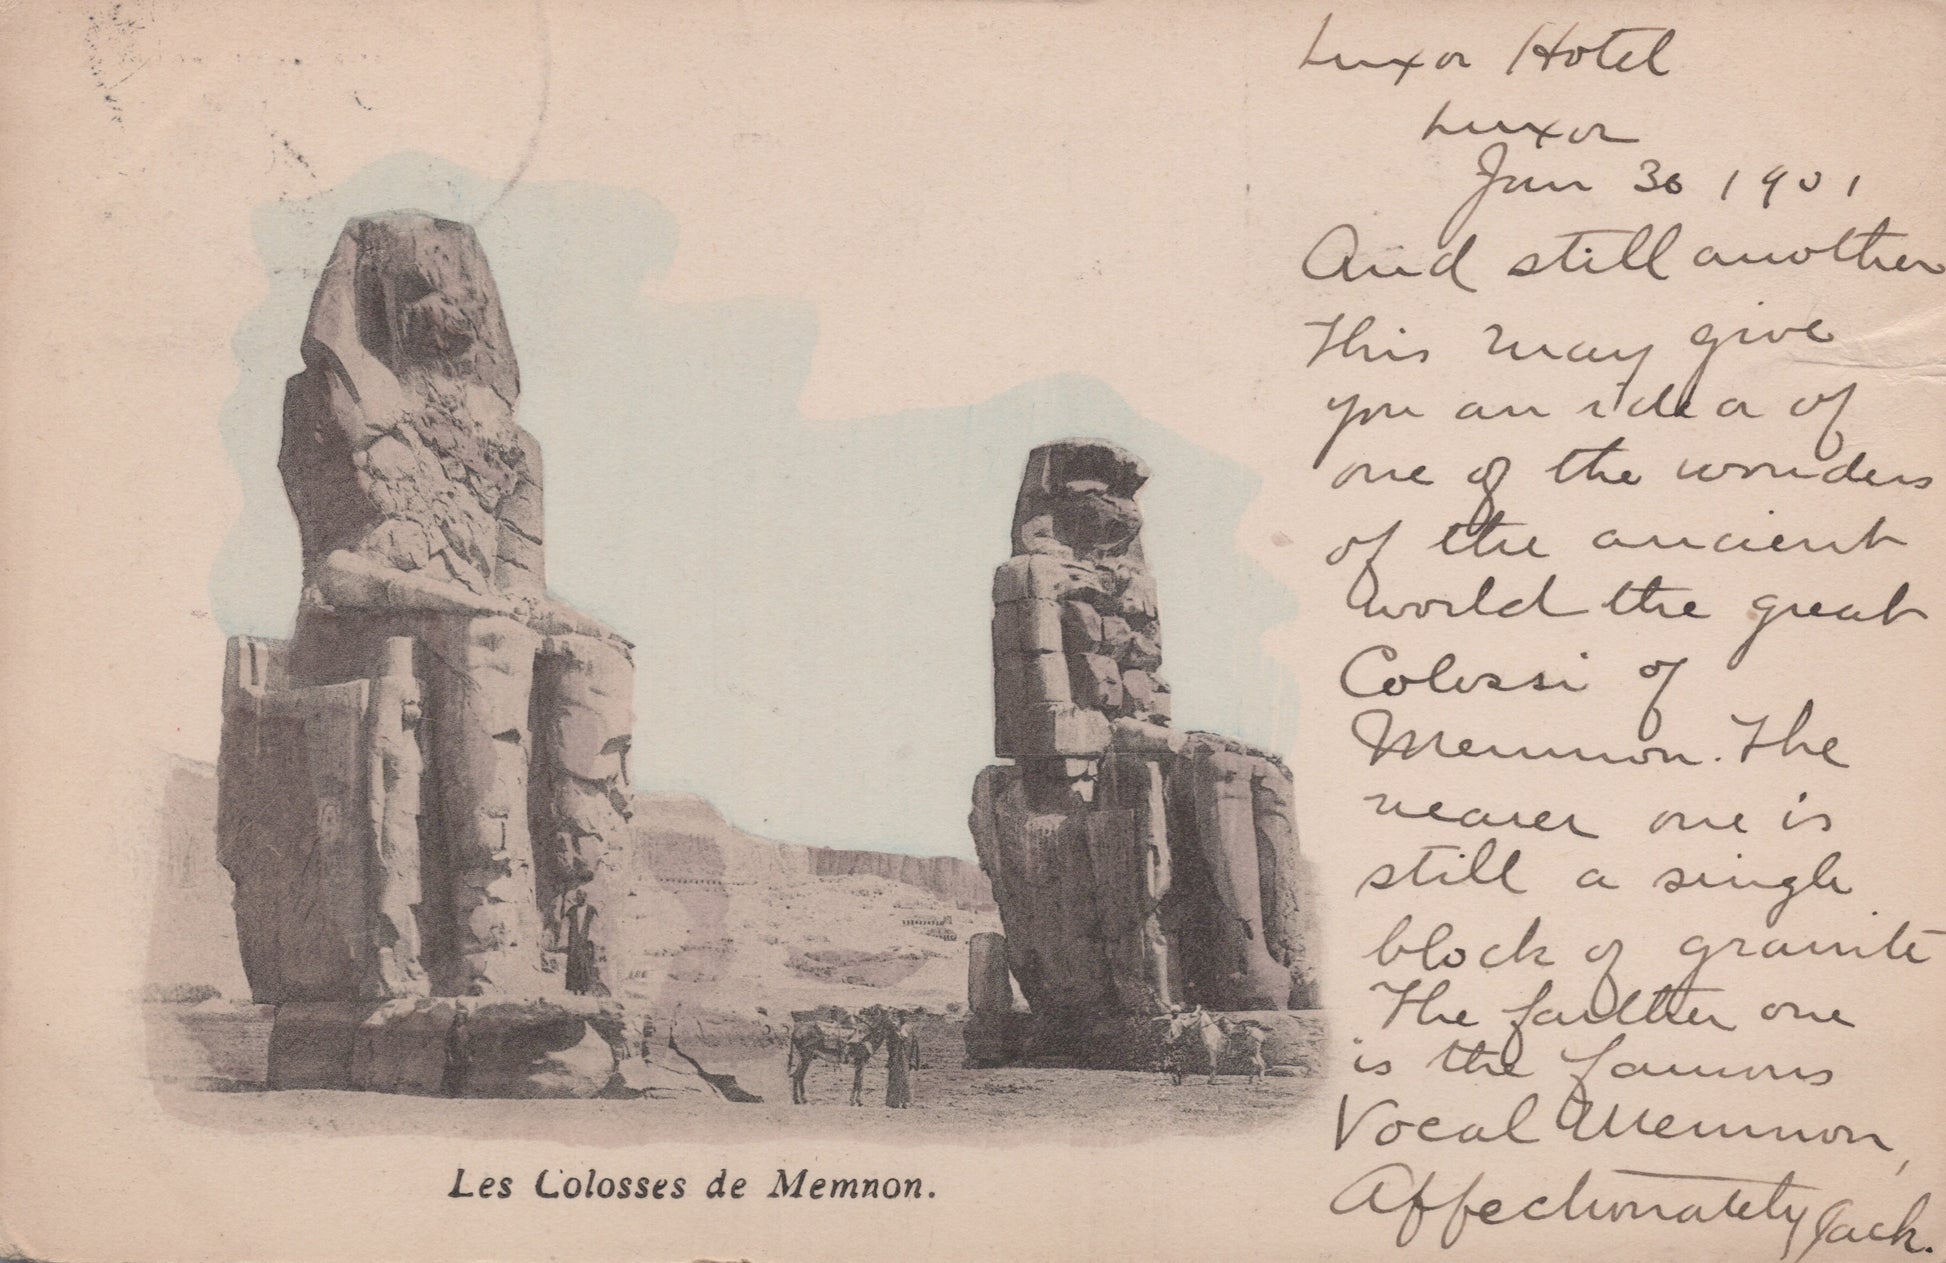 Luxor Hotel
Luxor
Jan 30 1901
And still another
This may give
you an idea of
one of the wonders
of the ancient
world the great
Colossi of
Memnon. The
nearer one is
still a single
block of granite
The farther one
is the famous
Vocal Memnon,
Affectionately Jack.
Les Colosses de Memnon.